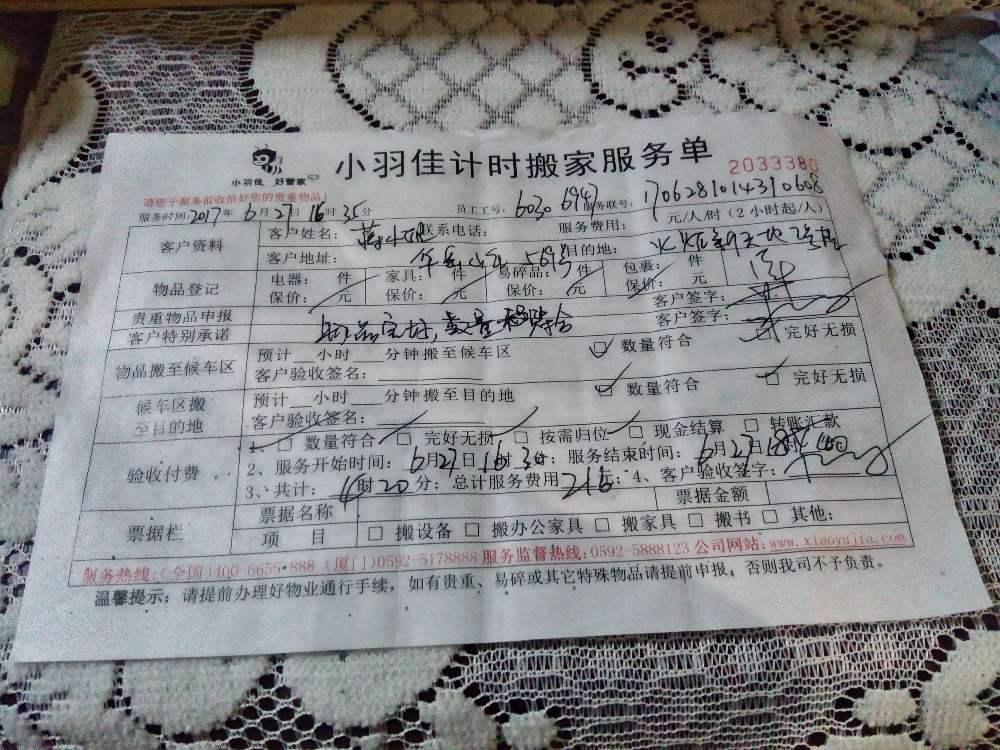 小羽佳 好管家
小羽佳计时搬家服务单
2033380
请您于服务前收拾好您的贵重物品!
服务时间:2017年6月27日16时35分 员工工号:6030 6947 服务联号:170628101439 0608
客户资料
客户姓名: 联系电话: 服务费用: 元/人/时(2小时起/人)
客户地址: 目的地:
物品登记
电器: 件 家具: 件 易碎品: 件 包裹: 件
保价: 元 保价: 元 保价: 元 保价: 元
贵重物品申报 客户签字:
客户特别承诺 物品完好,数量 符合 客户签字:
物品搬至候车区
预计__小时__分钟搬至候车区 数量符合 完好无损
客户验收签名:
候车区搬至目的地
预计__小时__分钟搬至目的地 数量符合 完好无损
客户验收签名:
验收付费
1、□ 数量符合 □ 完好无损 □ 按需归位 □ 现金结算 □ 转账汇款
2、服务开始时间:6月27日 时 分;服务结束时间:6月27日
3、共计:4时20分;总计服务费用 ;4、客户验收签字:
票据栏
票据名称 票据金额
项 目 □ 搬设备 □ 搬办公家具 □ 搬家具 □ 搬书 □ 其他:
服务热线:(全国)400-6655-888 (厦门)0592-5178888 服务监督热线:0592-5888123 公司网站:www.xiaoyujia.com
温馨提示:请提前办理好物业通行手续,如有贵重、易碎或其它特殊物品请提前申报,否则我司不予负责。